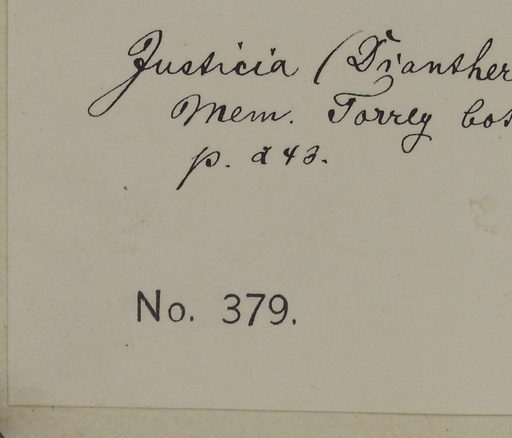 Justicia (Dianther
Mem. Torrey bot
p. 243.
No. 379.